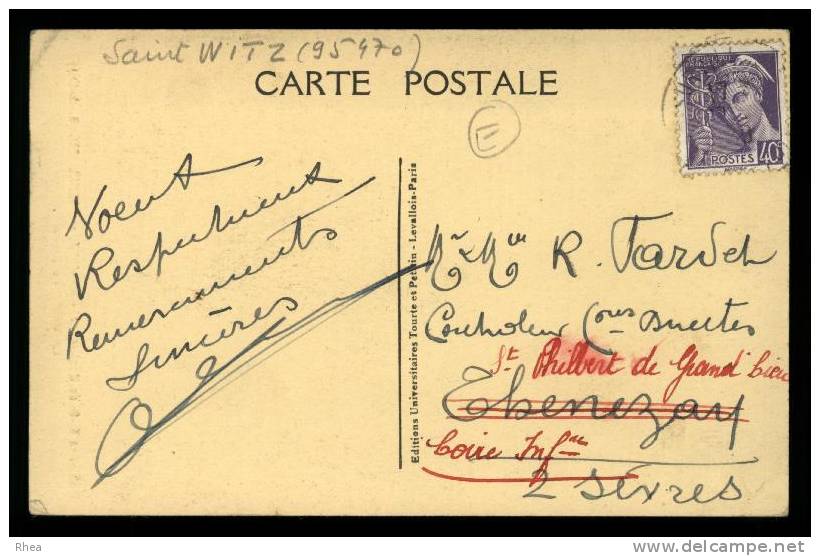 Saint WITZ (95470)
CARTE POSTALE
E
REPUBLIQUE
FRANCAISE
POSTES 40c
Voeux
Respectueux
Remerciements
Sincères
Editions Universitaires Tourte et Petitin - Levallois-Paris
Mr & Mme R. Tardet
Controleur Cons Directes
St Philbert de Grand Lieu
Thenezay
Loire Infre
2 Sèvres
Rhea
www.delcampe.net